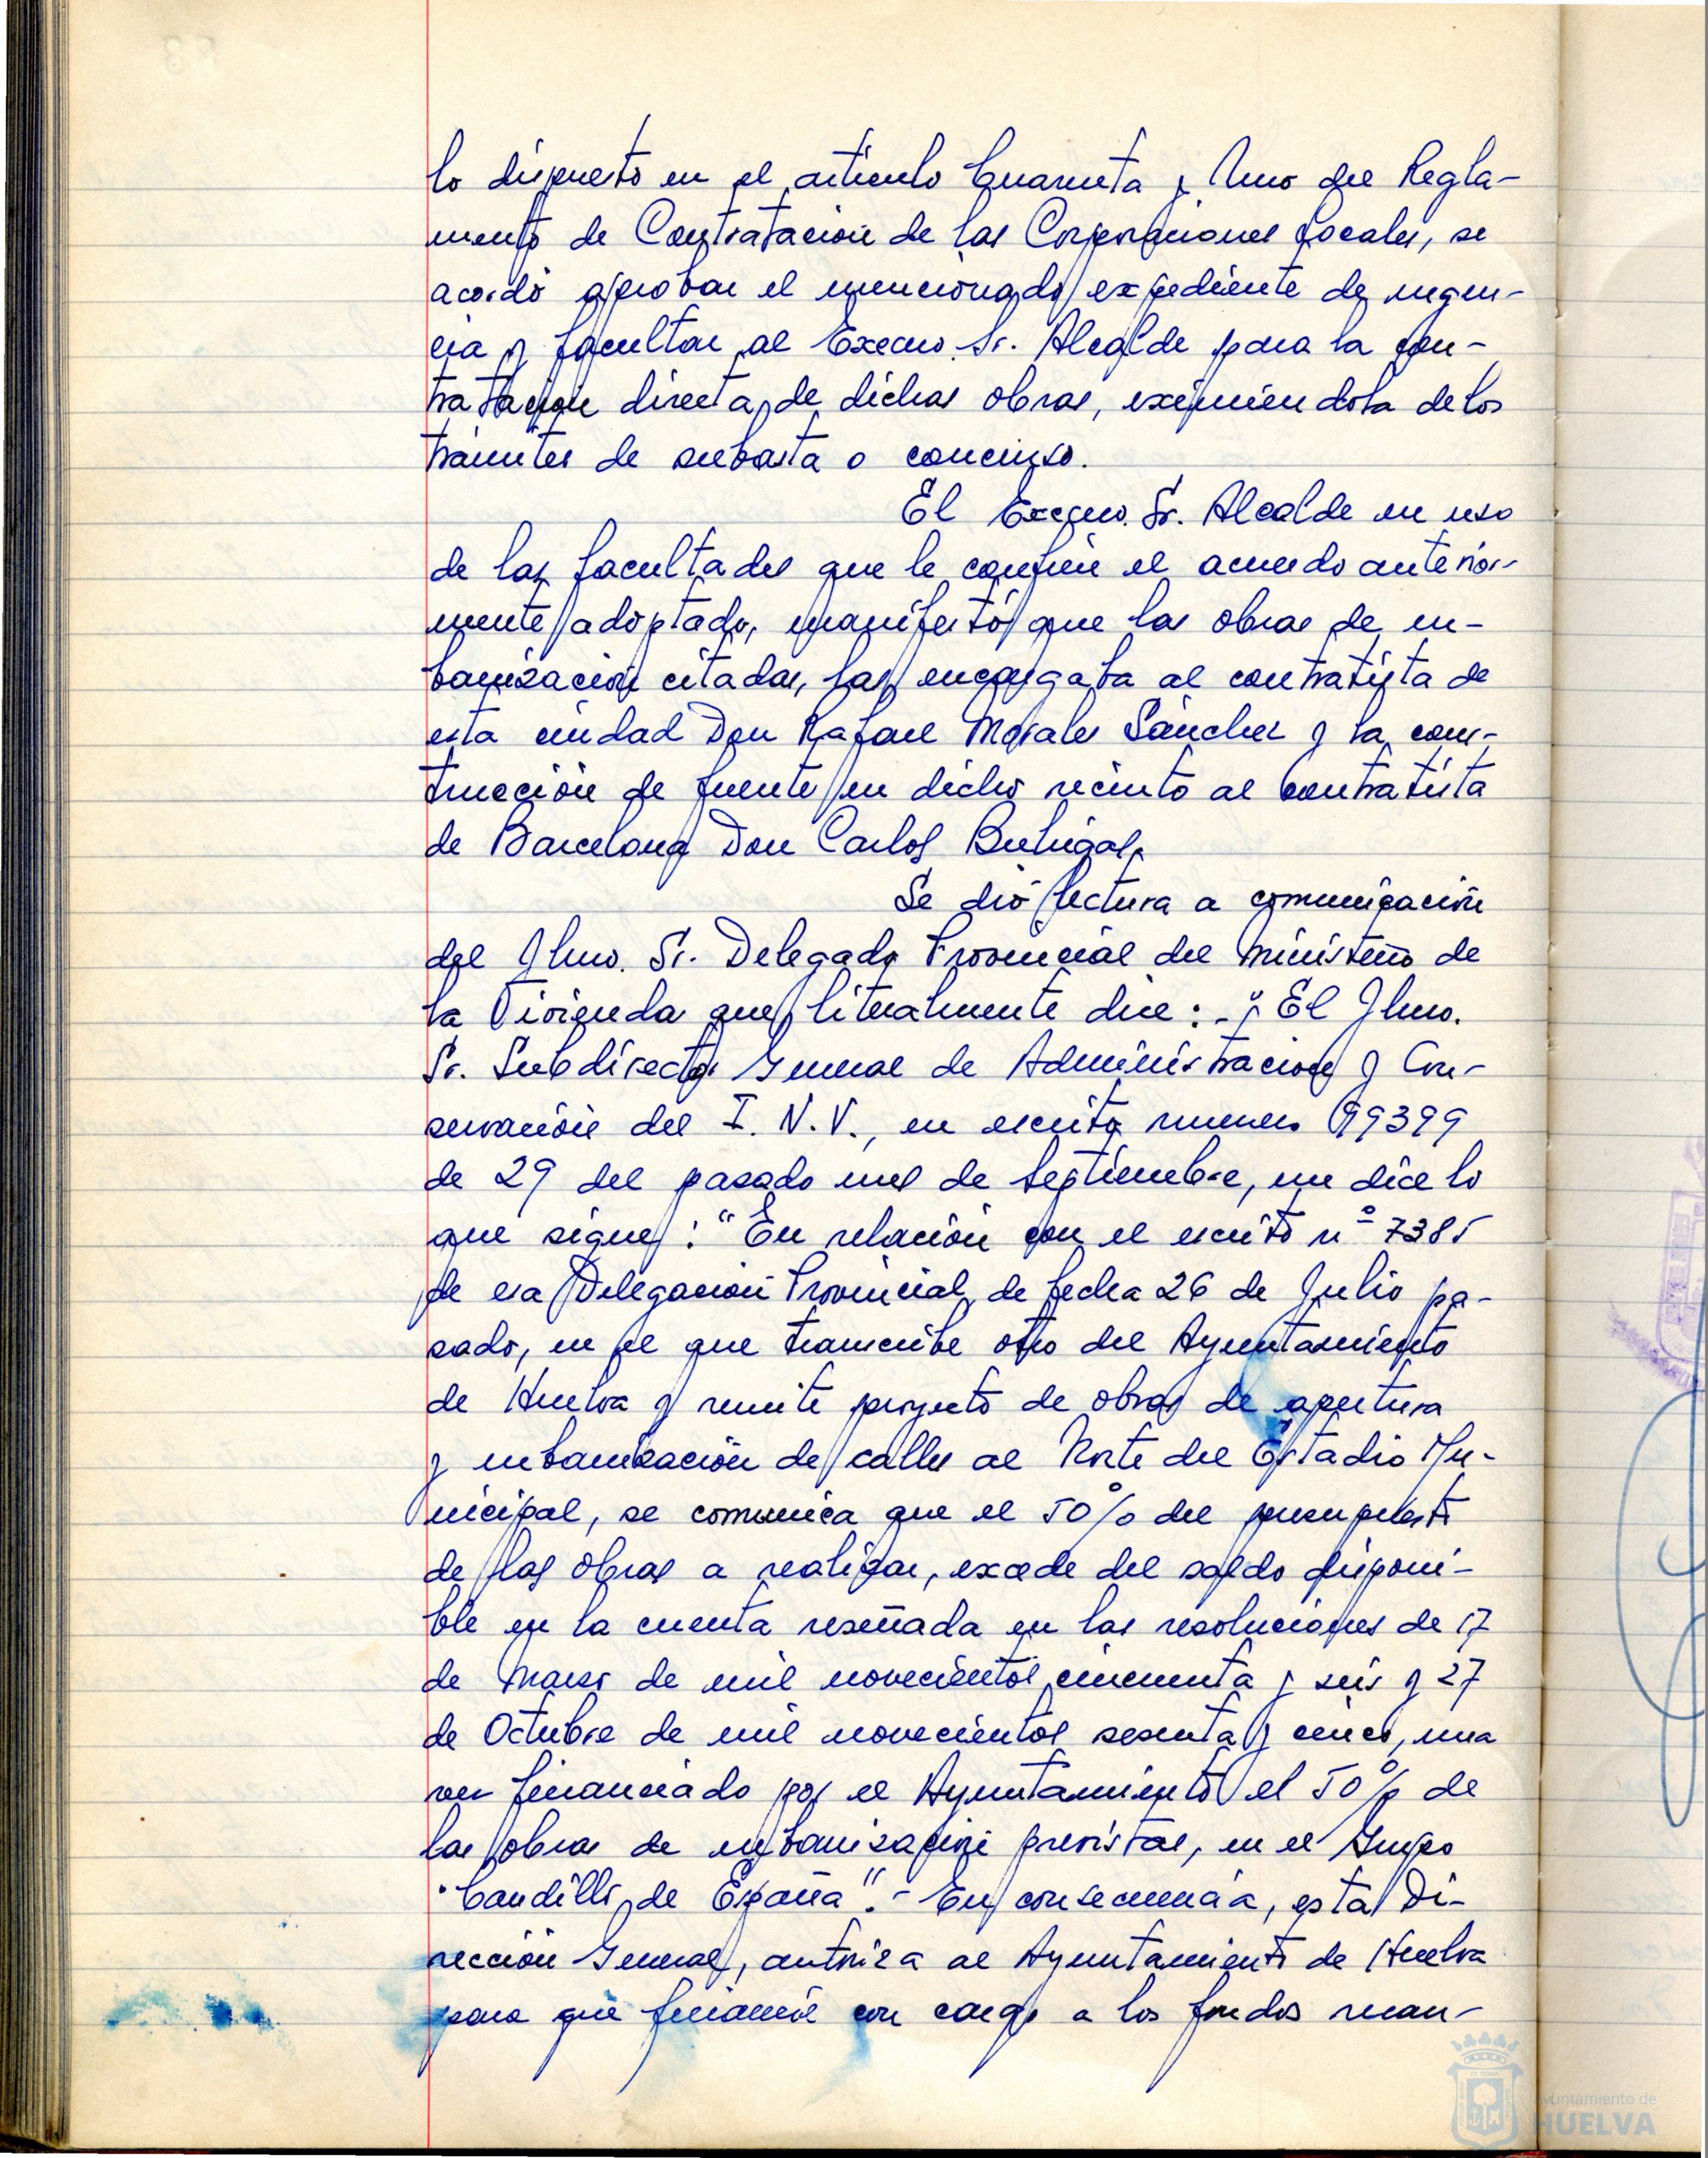 lo dispuesto en el artículo Cuarenta y Uno del Regla-
mento de Contratación de las Corporaciones Locales, se
acordó aprobar el mencionado expediente de urgen-
cia y facultar al Excmo. Sr. Alcalde para la con-
tratación directa de dichas obras, eximiéndola de los
trámites de subasta o concurso.
El Excmo. Sr. Alcalde en uso
de las facultades que le confiere el acuerdo anterior-
mente adoptado, manifestó que las obras de ur-
banización citadas, las encargaba al contratista de
esta ciudad Don Rafael Morales Sánchez y la cons-
trucción de fuente en dicho recinto al Contratista
de Barcelona Don Carlos Buhigas.
Se dió lectura a comunicación
del Ilmo. Sr. Delegado Provincial del Ministerio de
la Vivienda que literalmente dice: - "El Ilmo.
Sr. Subdirector General de Administración y Con-
servación del I. N. V., en escrito número 99399
de 29 del pasado mes de Septiembre, me dice lo
que sigue: "En relación con el escrito nº 7385
de esa Delegación Provincial, de fecha 26 de Julio pa-
sado, en el que transcribe otro del Ayuntamiento
de Huelva y remite proyecto de obras de apertura
y urbanización de calles al Norte del Estadio Mu-
nicipal, se comunica que el 50% del presupuesto
de las obras a realizar, excede del saldo disponi-
ble en la cuenta reseñada en las resoluciones de 17
de Marzo de mil novecientos cincuenta y seis y 27
de Octubre de mil novecientos sesenta y cinco, una
vez financiado por el Ayuntamiento el 50% de
las obras de urbanización previstas, en el Grupo
"Caudillo de España". - En consecuencia, esta Di-
rección General, autoriza al Ayuntamiento de Huelva
para que financie con cargo a los fondos reman-
Ayuntamiento de
HUELVA